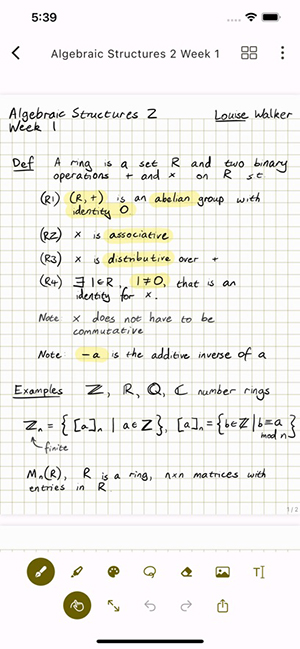 5:39
Algebraic Structures 2 Week 1
Algebraic Structures 2 Louise Walker
Week 1
Def A ring is a set R and two binary
operations + and × on R st
(R1) (R, +) is an abelian group with
identity 0
(R2) × is associative
(R3) × is distributive over +
(R4) ∃ 1∈R, 1≠0, that is an
identity for ×.
Note × does not have to be
commutative
Note -a is the additive inverse of a
Examples ℤ, ℝ, ℚ, ℂ number rings
ℤₙ = { [a]ₙ | a∈ℤ }, [a]ₙ = { b∈ℤ | b≡a
mod n }
finite
Mₙ(R), R is a ring, n×n matrices with
entries in R
1/2
T